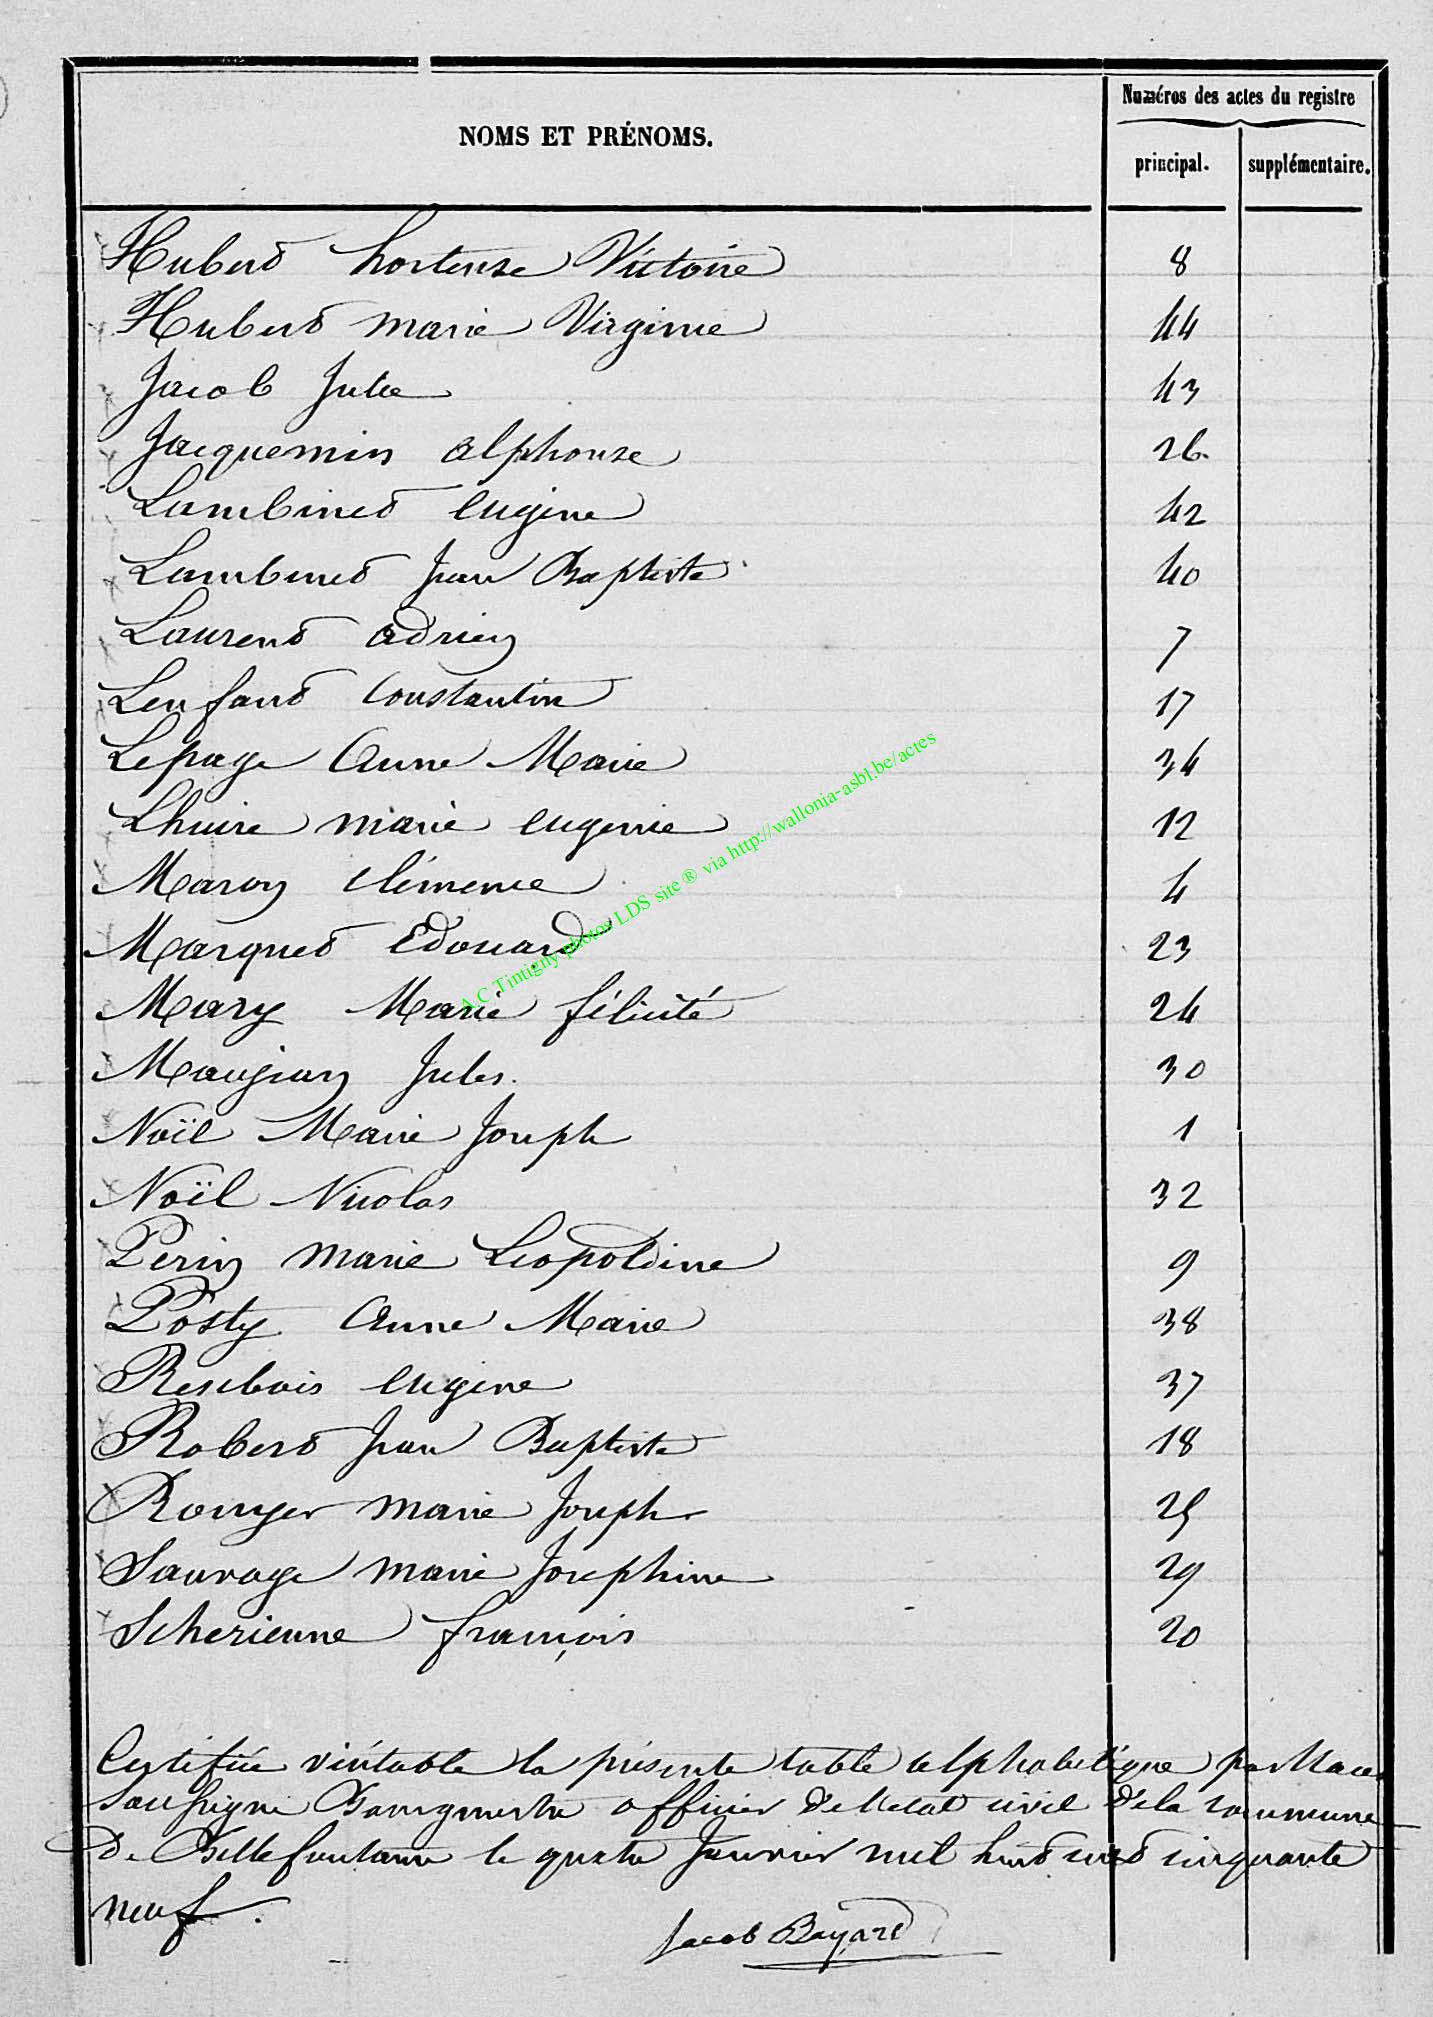 Numéros des actes du registre
NOMS ET PRÉNOMS.
principal. supplémentaire.
Hubert hortense Victoire 8
Hubert marie Virginie 44
Jacob Julie 43
Jacquemin alphonse 26
Lambinet Eugène 42
Lambinet Jean Baptiste 40
Laurent adrien 7
Lenfant Constantin 17
Lepage Anne Marie 34
Lhuire marie eugenie 12
Maron Clémence 4
Marquet Edouard 23
Mary Marie félicité 24
Maugian Jules. 30
Noël Marie Joseph 1
Noël Nicolas 32
Perin marie Leopoldine 9
Posty Anne Marie 38
Eugène 37
Robert Jean Baptiste 18
Ronger marie Joseph 25
Sauvage marie Josephine 29
Scherienne françois 20
Certifiée véritable la présente table alphabetique par Nous
Soussigné Bourgmestre officier de l'etat civil de la commune
De Bellefontaine le quatre Janvier mil huit cent cinquante
neuf.
Jacob Bayard
A.C Tintigny photos LDS site ® via http://wallonia-asbl.be/actes